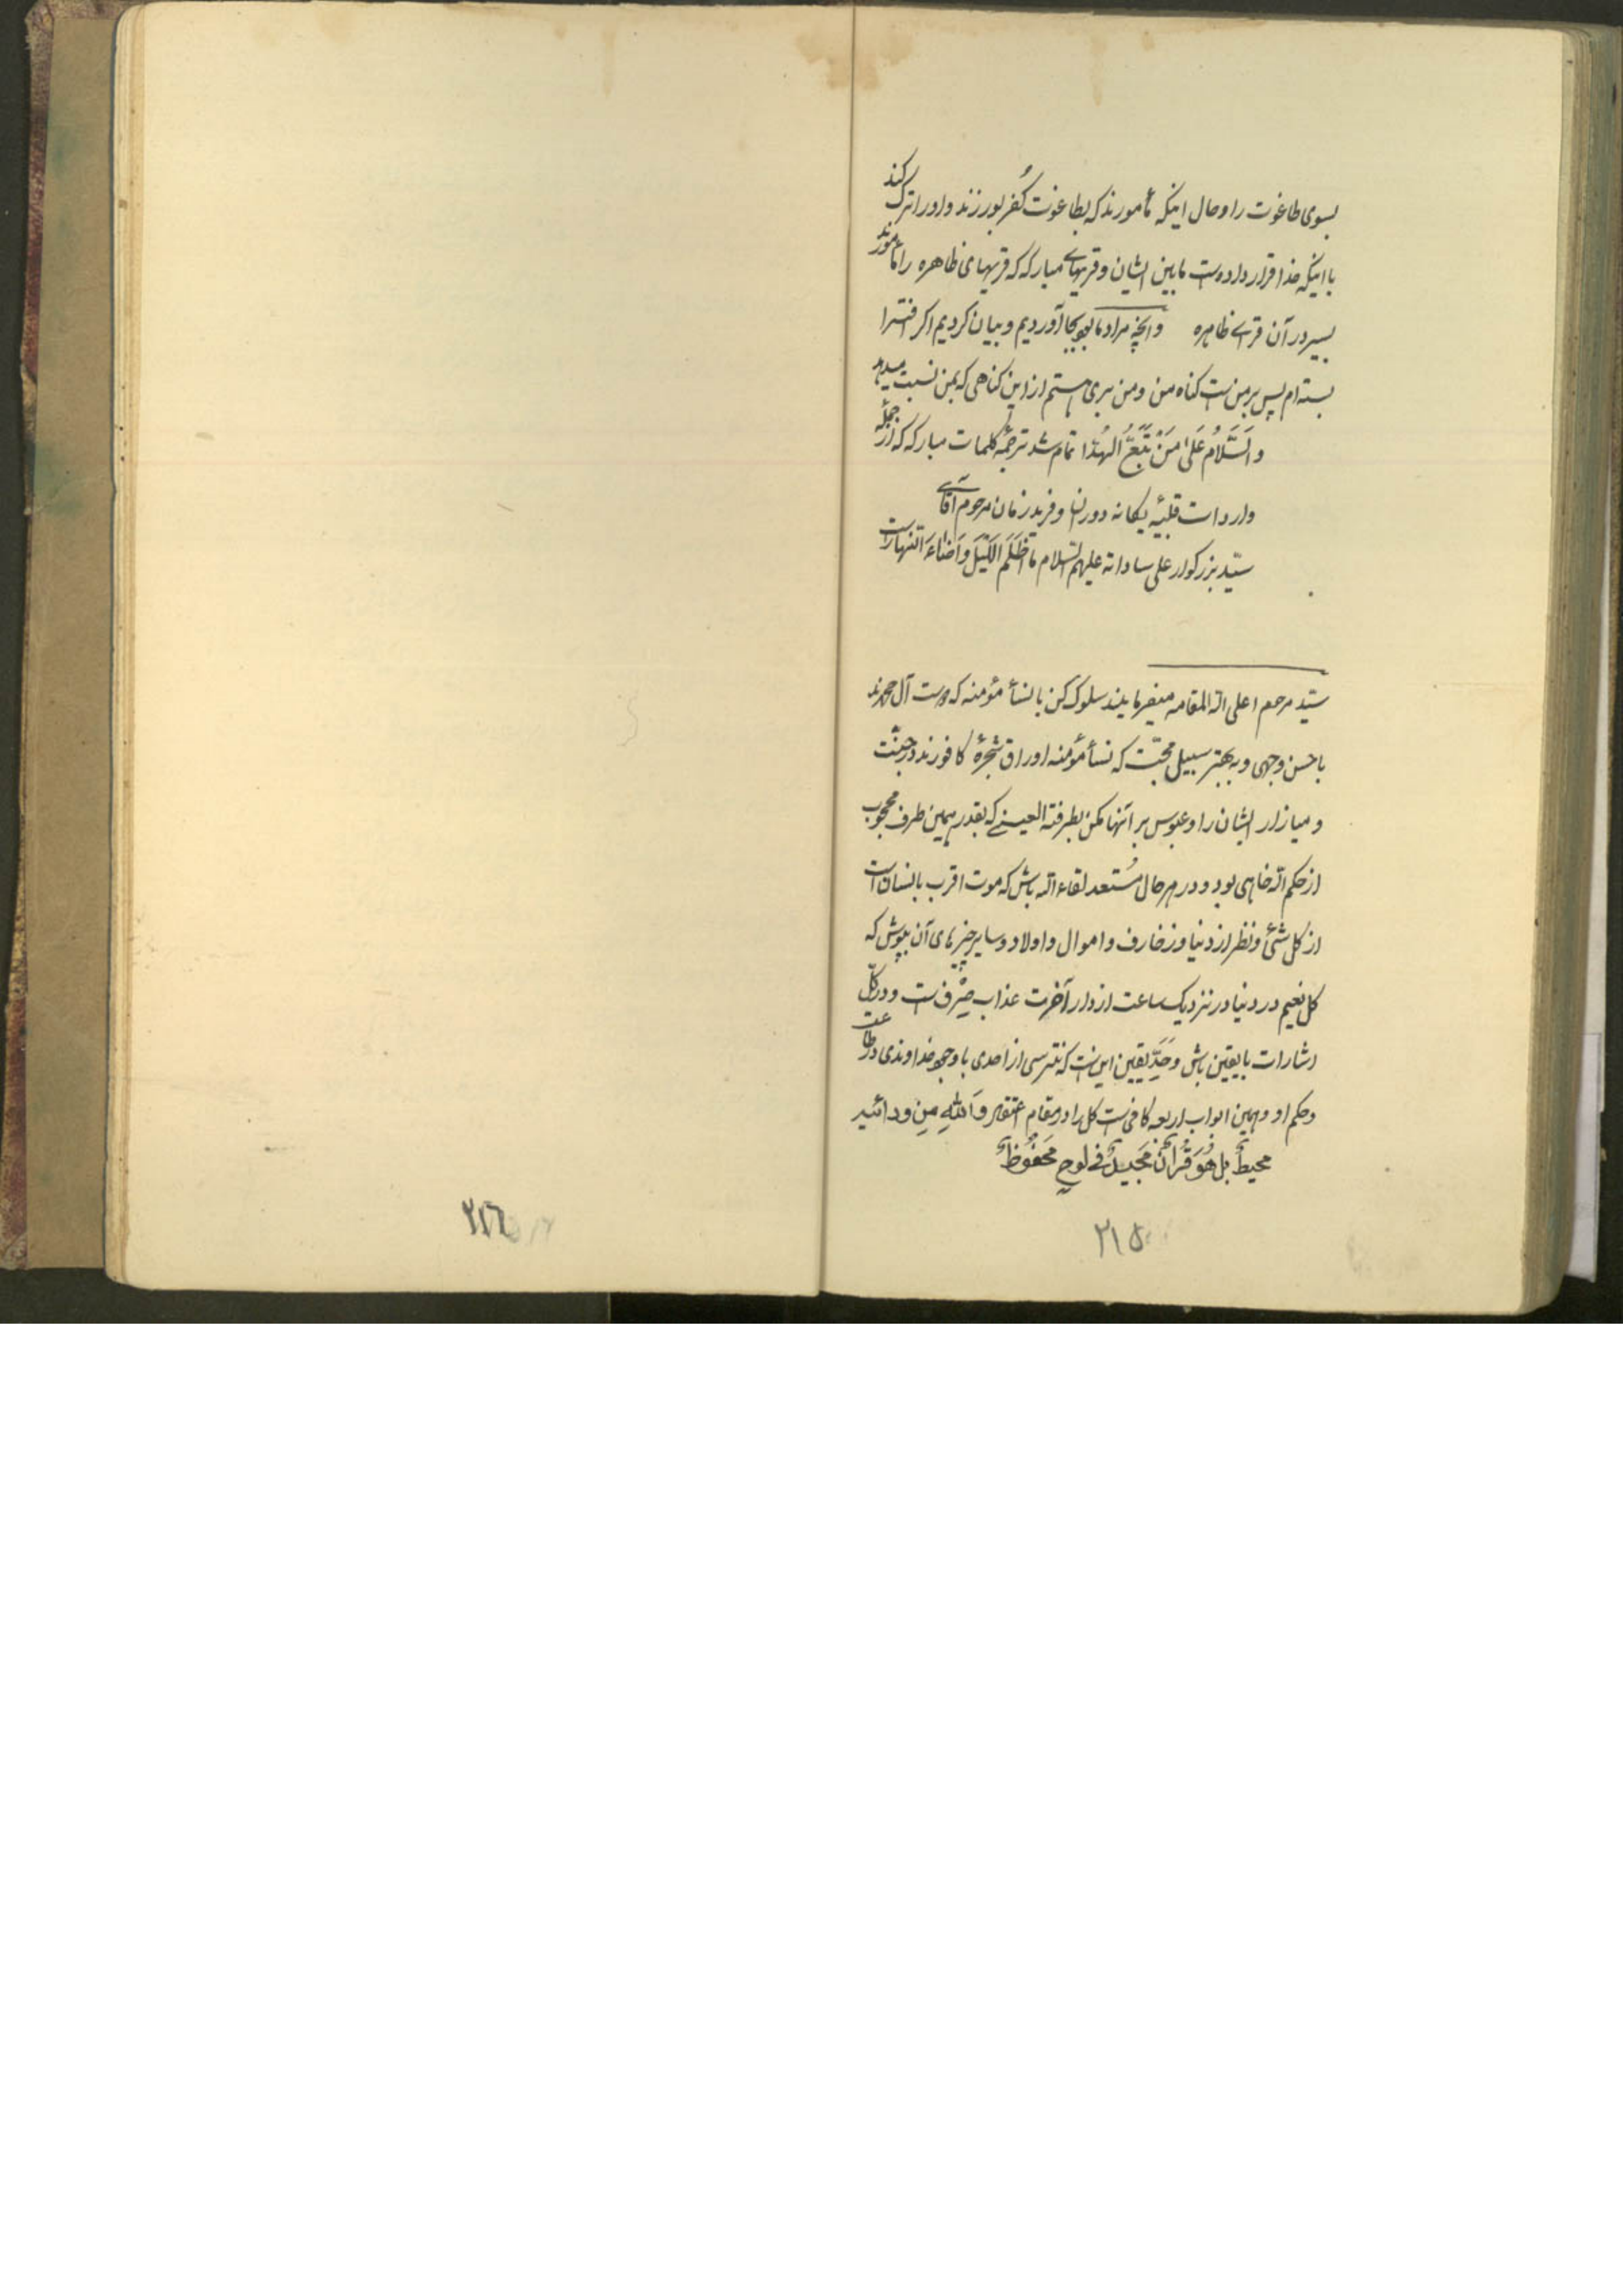 بسوی طاغوت را و حال اینکه مأمورند که بطاغوت کُفر بورزند و اورا ترک کنند
با اینکه خدا قرار داده است مابین ایشان و قریهای مبارکه که قریهای ظاهره را مأمورند
بسیر در آن قرای ظاهره و آنچه مراد ما بود بجا آوردیم و بیان کردیم اگر افترا
بسته ام پس بر من است گناه من و من بری هستم از این گناهی که بمن نسبت میدهند
والسَّلامُ عَلیٰ مَنْ تَّبَعَ الهُدٰا تمام شد ترجمهٔ کلمات مبارکه که از جملهٔ
واردات قلبیّه یگانه دوران و فرید زمان مرحوم آقای
سیّد بزرگوار علی ساداته علیهم السّلام ما اَظلَمَ اللَّیلَ وَاَضاءَ النّهار است
سیّد مرحوم اعلی الله المقامه میفرمایند سلوک کن با نسأ مؤمنه که امت آل محمدند
باحسن وجهی و به بهتر سبیل محبّت که نسأ مؤمنه اوراق شجرهٔ کافورند در جنّت
و میازار ایشان را و عبوس بر آنها مکن بطرفة العینی که بقدر همین طرف محجوب
از حکم الله خواهی بود و در هر حال مُستعد لقاء الله باش که موت اقرب بانسان است
از کل شئ و نظر از دنیا و زخارف و اموال و اولاد و سایر چیزهای آن بپوش که
کل نعیم در دنیا در نزد یکساعت از دار آخرت عذاب صِرف است و در کلّ
اشارات با یقین باش و حَدِّ یقین این است که نترسی از احدی با وجود خداوندی در طاعت
و حکم او و همین ابواب اربعه کافی است کل را در مقام اعتقاد واَللهِ مِن ورائید
محیطٌ بل هُوَ قُرانٌ مَجیدٌ فی لوحٍ مَحفُوظٌ
۲۱۵
۲۱٦